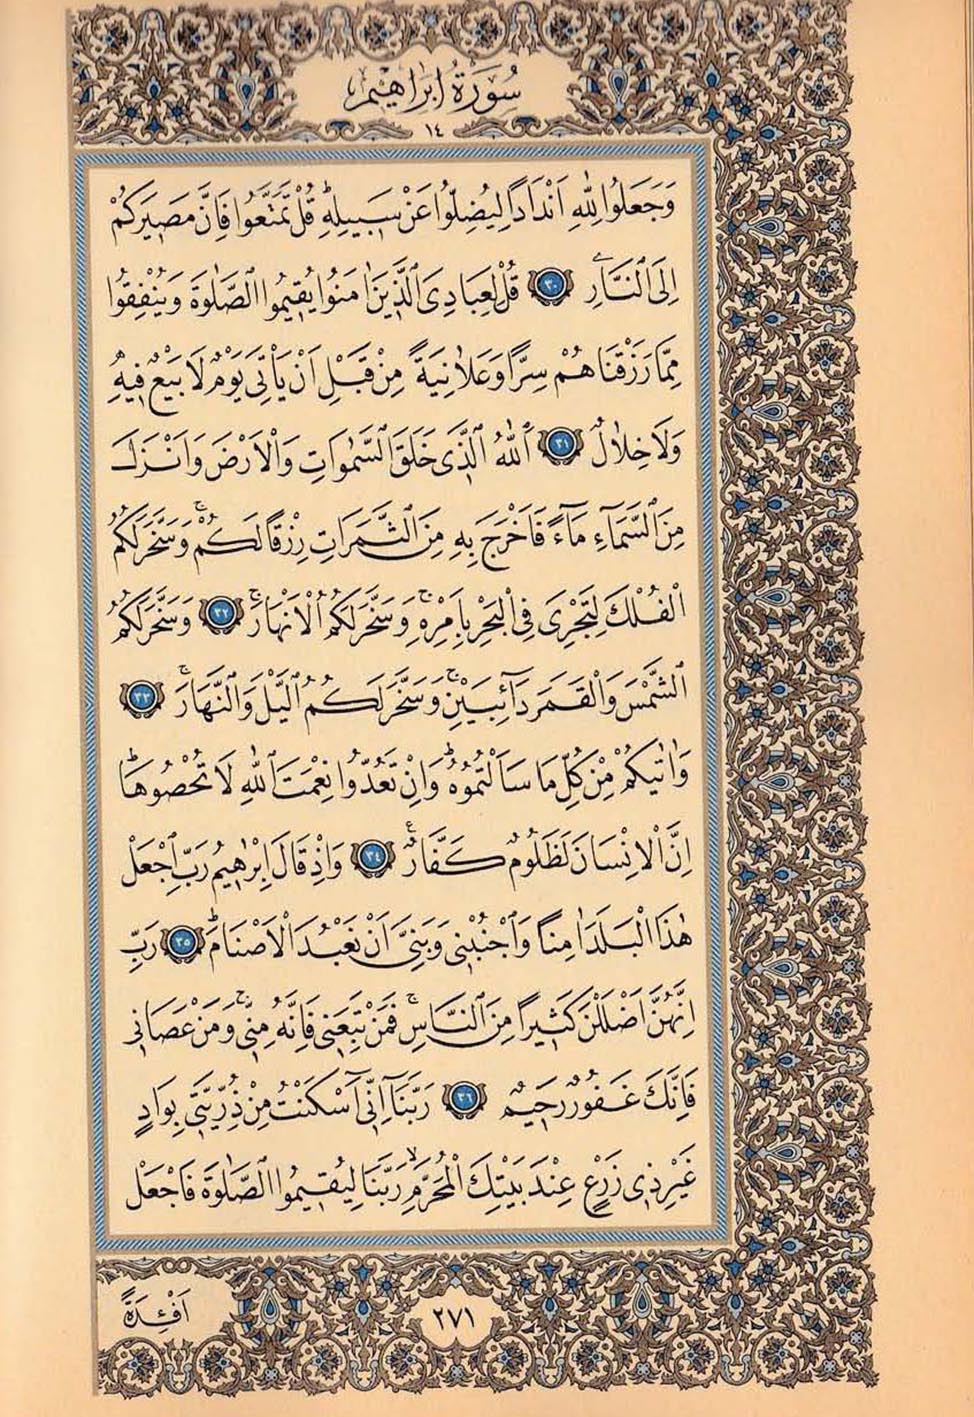 سُورَةُ اِبْرَاهِيمَ
١٤
وَجَعَلُوا لِلّٰهِ اَنْدَادًا لِيُضِلُّوا عَنْ سَبِيلِهِۜ قُلْ تَمَتَّعُوا فَاِنَّ مَصِيرَكُمْ
اِلَى النَّارِ ٣٠ قُلْ لِعِبَادِيَ الَّذِينَ اٰمَنُوا يُقِيمُوا الصَّلٰوةَ وَيُنْفِقُوا
مِمَّا رَزَقْنَاهُمْ سِرًّا وَعَلَانِيَةً مِنْ قَبْلِ اَنْ يَأْتِيَ يَوْمٌ لَا بَيْعٌ فِيهِ
وَلَا خِلَالٌ ٣١ اَللّٰهُ الَّذِي خَلَقَ السَّمٰوَاتِ وَالْاَرْضَ وَاَنْزَلَ
مِنَ السَّمَٓاءِ مَٓاءً فَاَخْرَجَ بِهِ مِنَ الثَّمَرَاتِ رِزْقًا لَكُمْۚ وَسَخَّرَ لَكُمُ
الْفُلْكَ لِتَجْرِيَ فِي الْبَحْرِ بِاَمْرِهِۚ وَسَخَّرَ لَكُمُ الْاَنْهَارَۚ ٣٢ وَسَخَّرَ لَكُمُ
الشَّمْسَ وَالْقَمَرَ دَٓائِبَيْنِۚ وَسَخَّرَ لَكُمُ الَّيْلَ وَالنَّهَارَۚ ٣٣
وَاٰتٰيكُمْ مِنْ كُلِّ مَا سَاَلْتُمُوهُۜ وَاِنْ تَعُدُّوا نِعْمَتَ اللّٰهِ لَا تُحْصُوهَاۜ
اِنَّ الْاِنْسَانَ لَظَلُومٌ كَفَّارٌ۟ ٣٤ وَاِذْ قَالَ اِبْرٰهِيمُ رَبِّ اجْعَلْ
هٰذَا الْبَلَدَ اٰمِنًا وَاجْنُبْنِي وَبَنِيَّ اَنْ نَعْبُدَ الْاَصْنَامَۜ ٣٥ رَبِّ
اِنَّهُنَّ اَضْلَلْنَ كَثِيرًا مِنَ النَّاسِۚ فَمَنْ تَبِعَنِي فَاِنَّهُ مِنِّيۚ وَمَنْ عَصَانِي
فَاِنَّكَ غَفُورٌ رَحِيمٌ ٣٦ رَبَّنَٓا اِنِّٓي اَسْكَنْتُ مِنْ ذُرِّيَّتِي بِوَادٍ
غَيْرِ ذِي زَرْعٍ عِنْدَ بَيْتِكَ الْمُحَرَّمِۙ رَبَّنَا لِيُقِيمُوا الصَّلٰوةَ فَاجْعَلْ
اَفْئِدَةً
٢٧١